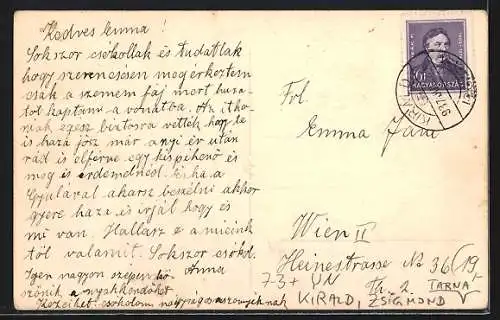 Kedves Emma!
Sokszor csókollak és tudatlak
hogy szerencsésen megérkeztem
csak a szemem fáj mert huza-
tot kaptam a vonatba. Az itho-
niak egész biztosra vették hogy te
is haza jösz már annyi év után
rád is elférne egy kis pihenő és
meg is érdemelnéd. Ha a
Gyulával akarsz beszélni akkor
gyere haza és irjál hogy és
mi van. Hallasz e a mieink
től valamit. Sokszor csókol
Anna
Igen nagyon szépen kö
szönik a nyakkendőket
Kezeihet csokolom nagyságos asszonyéknak
MAGYARORSZÁG
Frl.
Emma Jani
Wien II
Heinestrasse No 36/19,
Th. 2
73 + UN
TARNA
KIRALD, ZSIGMOND